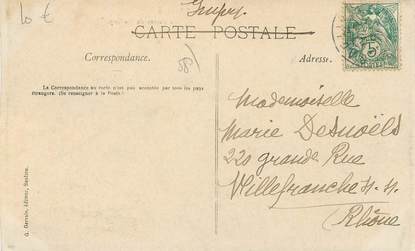 10 €
CARTE POSTALE
Correspondance.
Adresse.
58
La Correspondance au recto n'est pas acceptée par tous les pays
étrangers. (Se renseigner à la Poste.)
Mademoiselle
Marie Desnoëls
220 grande Rue
Villefranche s. s.
Rhône
5